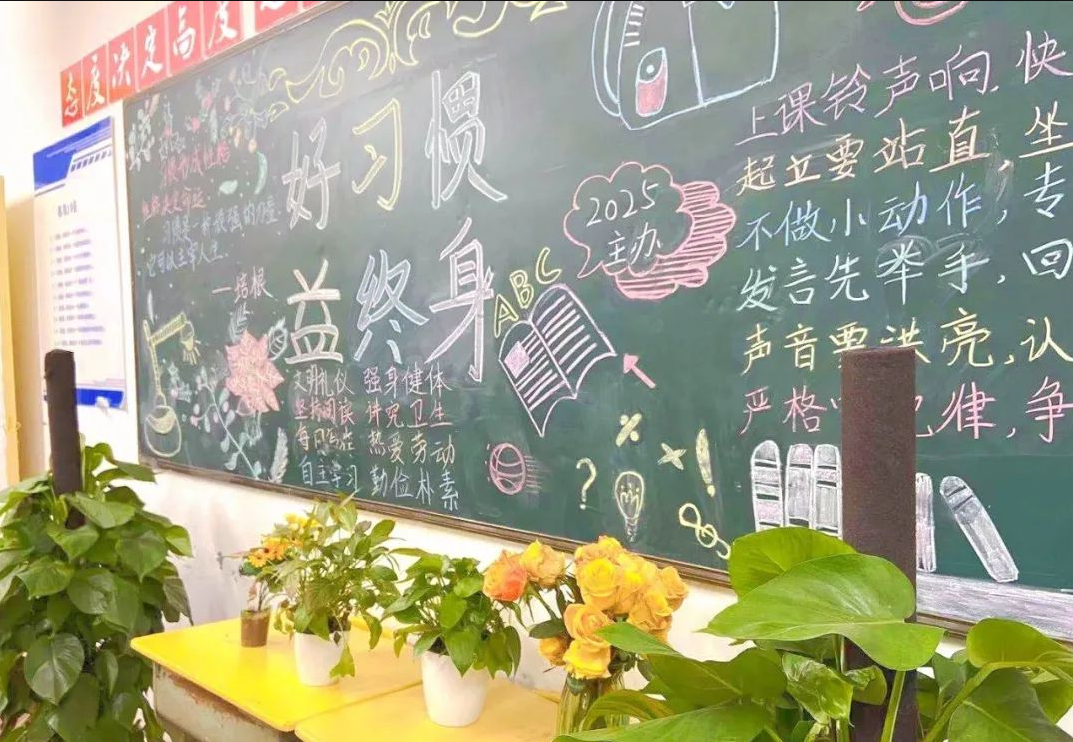 态度决定高度
习惯形成性格
性格决定命运
习惯是一种顽强的力量
也可以主宰人生。
——培根
好习惯
益终身
文明礼仪 强身健体
坚持阅读 讲究卫生
每日写作 热爱劳动
自主学习 勤俭朴素
ABC
2025
主办
上课铃声响,快
起立要站直,坐
不做小动作,专
发言先举手,回
声音要洪亮,认
严格 纪律,争
?
!